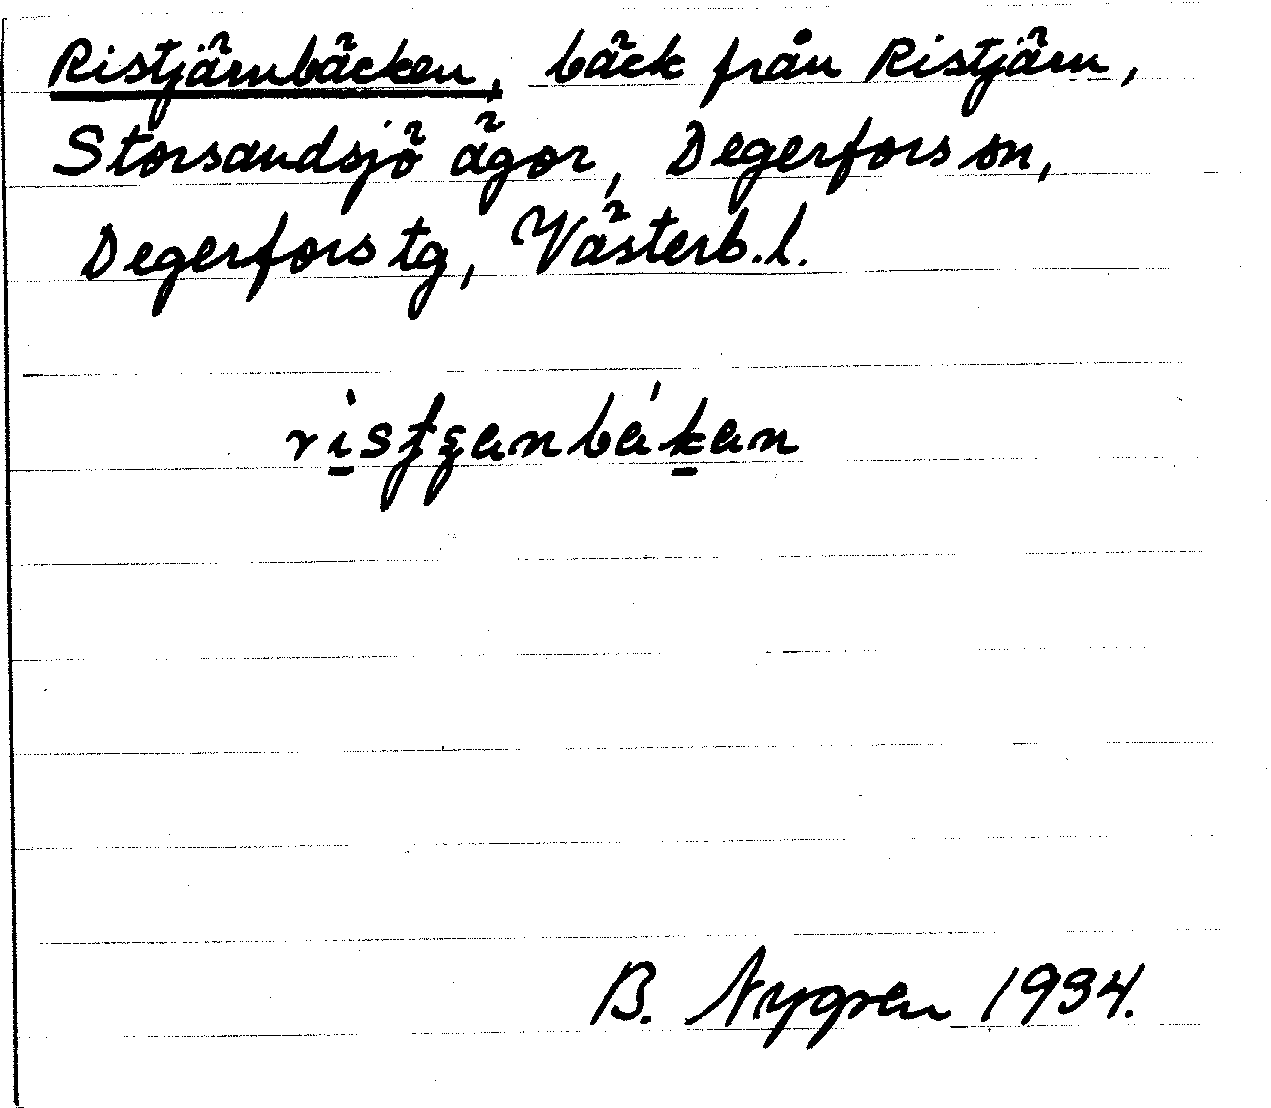 Ristjärnbäcken, bäck från Ristjärn,
Storsandsjö ägor, Degerfors sn,
Degerfors tg, Västerb.l.
B. Nygren 1934.